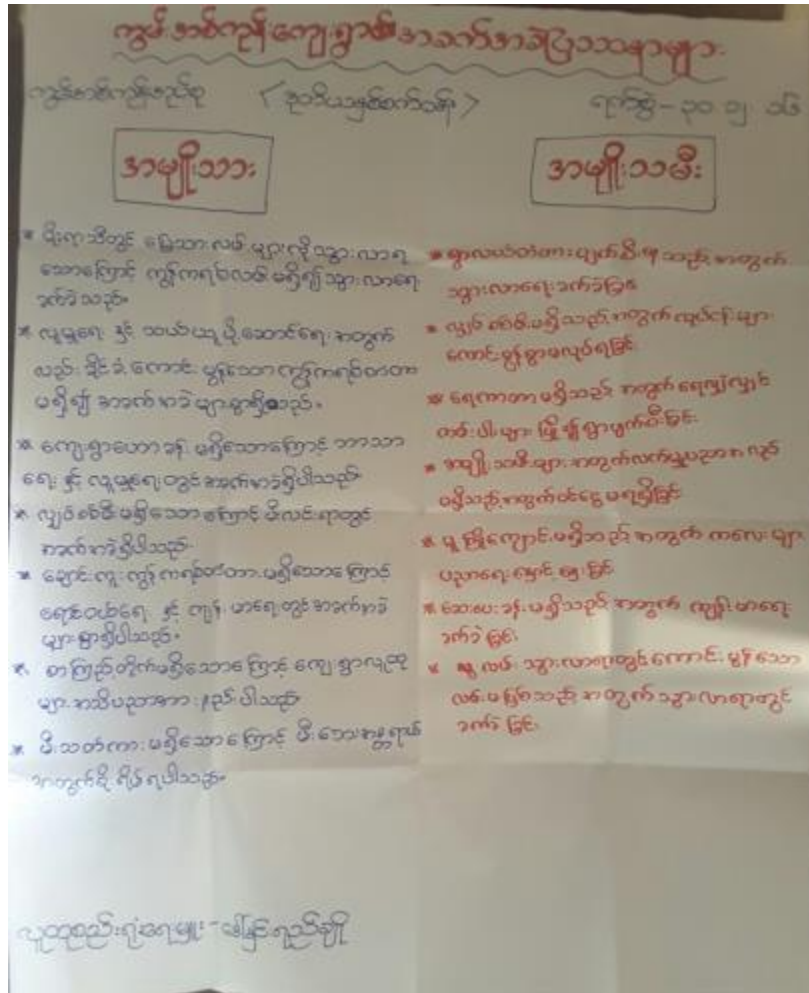 ကွမ်းအစ်ကုန်းကျေးရွာ၏အခက်အခဲပြဿနာများ
< ဒုတိယနှစ်စက်ဝန်း >
ရက်စွဲ - ၃၀ ၁၂ ၁၆
အမျိုးသား
* မိုးကာသီတွင် မြေသားလမ်းများကိုသွားလာရ
သောကြောင့် ကွန်ကရစ်လမ်းမရှိ၍သွားလာရေး
ခက်ခဲသည်။
* လူမှုရေး နှင့် သယ်ယူပို့ဆောင်ရေးအတွက်
လည်း ခိုင်ခံ့ကောင်းမွန်သောကွန်ကရစ်တံတား
မရှိ၍ အခက်အခဲများစွာရှိသည်။
* ကျေးရွာဟောခန်းမရှိသောကြောင့် ဘာသာ
ရေး နှင့် လူမှုရေးတွင်အခက်အခဲရှိပါသည်
* လျှပ်စစ်မီးမရှိသောကြောင့် မီးလင်းရာတွင်
အခက်အခဲရှိပါသည်
* ချောင်းကူးကွန်ကရစ်တံတားမရှိသောကြောင့်
နှင့် ကျန်းမာရေးတွင်အခက်အခဲ
များစွာရှိပါသည်။
* စာကြည့်တိုက်မရှိသောကြောင့် ကျေးရွာလူထု
များအသိပညာအားနည်းပါသည်
* မီးသတ်ကားမရှိသောကြောင့် မီးဘေးအန္တရာယ်
အတွက်စိုးရိမ်ရပါသည်။
အမျိုးသမီး
* ရွာလယ်တံတားပျက်စီးမှုသည့်အတွက်
သွားလာရေးခက်ခဲခြင်း
* လျှပ်စစ်မီးမရှိသည့်အတွက်လုပ်ငန်းများ
ကောင်းမွန်စွာမလုပ်ရခြင်း
* ရေကာတာမရှိသည့်အတွက်ရေလျှံလျှင်
ကမ်းပါးများပြို၍ရွာပျက်စီးခြင်း
* အမျိုးသမီးများအတွက်လက်မှုပညာအလုပ်
မရှိသည့်အတွက်ဝင်ငွေမရရှိခြင်း
* မူကြိုကျောင်းမရှိသည့်အတွက် ကလေးများ
ပညာရေးနှောင့်နှေးခြင်း
* ဆေးပေးခန်းမရှိသည့်အတွက် ကျန်းမာရေး
ခက်ခဲခြင်း
* လမ်းသွားလာရာတွင်ကောင်းမွန်သော
လမ်းမဖြစ်သည့်အတွက်သွားလာရာတွင်
ခက်ခဲခြင်း
လူထုစည်းရုံးရေးမှူး -